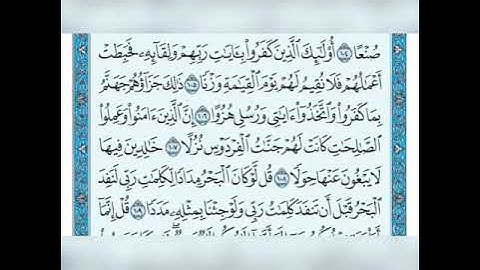 صُنْعًا ١٠٤ أُوْلَـٰٓئِكَ ٱلَّذِينَ كَفَرُواْ بِـَٔايَـٰتِ رَبِّهِمْ وَلِقَآئِهِۦ فَحَبِطَتْ
أَعْمَـٰلُهُمْ فَلَا نُقِيمُ لَهُمْ يَوْمَ ٱلْقِيَـٰمَةِ وَزْنًا ١٠٥ ذَٰلِكَ جَزَآؤُهُمْ جَهَنَّمُ
بِمَا كَفَرُواْ وَٱتَّخَذُوٓاْ ءَايَـٰتِى وَرُسُلِى هُزُوًا ١٠٦ إِنَّ ٱلَّذِينَ ءَامَنُواْ وَعَمِلُواْ
ٱلصَّـٰلِحَـٰتِ كَانَتْ لَهُمْ جَنَّـٰتُ ٱلْفِرْدَوْسِ نُزُلًا ١٠٧ خَـٰلِدِينَ فِيهَا
لَا يَبْغُونَ عَنْهَا حِوَلًا ١٠٨ قُل لَّوْ كَانَ ٱلْبَحْرُ مِدَادًا لِّكَلِمَـٰتِ رَبِّى لَنَفِدَ
ٱلْبَحْرُ قَبْلَ أَن تَنفَدَ كَلِمَـٰتُ رَبِّى وَلَوْ جِئْنَا بِمِثْلِهِۦ مَدَدًا ١٠٩ قُلْ إِنَّمَآ